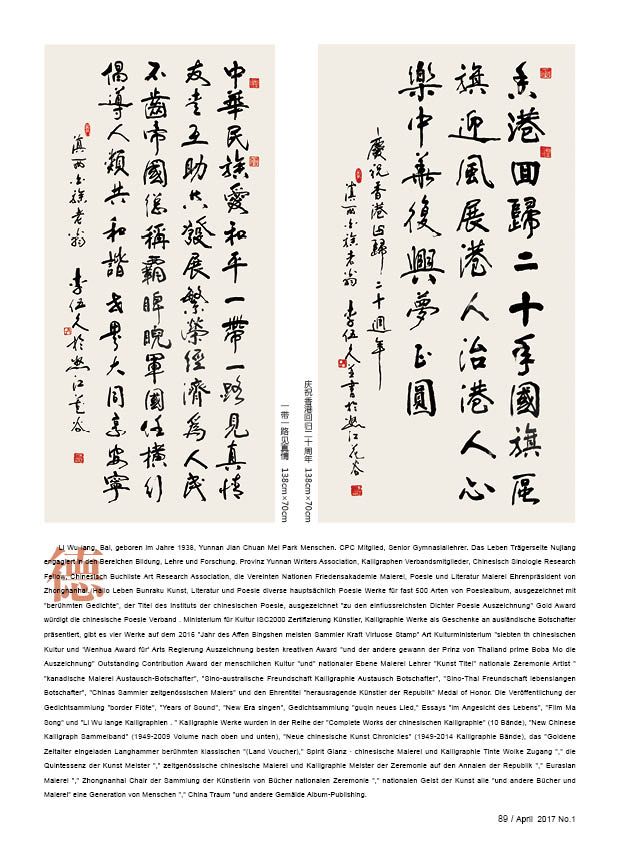 香港回歸二十年國旗區
旗迎風展港人治港人心
樂中華復興夢正圓
慶祝香港回歸二十週年
滇西白族老翁 李伍久書於怒江花谷
庆祝香港回归二十周年 138cm×70cm
中華民族愛和平一帶一路見真情
友善互助共發展繁榮經濟為人民
不齒帝國稱霸睥睨軍國任橫行
倡導人類共和諧世界大同享安寧
滇西白族老翁 李伍久於怒江谷
一带一路见真情 138cm×70cm
德
Li Wujiang, Bai, geboren im Jahre 1938, Yunnan Jian Chuan Mei Park Menschen. CPC Mitglied, Senior Gymnasiallehrer. Das Leben Trägerseite Nujiang
engagiert in den Bereichen Bildung, Lehre und Forschung. Provinz Yunnan Writers Association, Kalligraphen Verbandsmitglieder, Chinesisch Sinologie Research
Fellow, Chinesisch Buchliste Art Research Association, die Vereinten Nationen Friedensakademie Malerei, Poesie und Literatur Malerei Ehrenpräsident von
Zhongnanhai. Hallo Leben Bunraku Kunst, Literatur und Poesie diverse hauptsächlich Poesie Werke für fast 500 Arten von Poesiealbum, ausgezeichnet mit
"berühmten Gedichte", der Titel des Instituts der chinesischen Poesie, ausgezeichnet "zu den einflussreichsten Dichter Poesie Auszeichnung" Gold Award
würdigt die chinesische Poesie Verband . Ministerium für Kultur ISC2000 Zertifizierung Künstler, Kalligraphie Werke als Geschenke an ausländische Botschafter
präsentiert, gibt es vier Werke auf dem 2016 "Jahr des Affen Bingshen meisten Sammler Kraft Virtuose Stamp" Art Kulturministerium "siebten th chinesischen
Kultur und 'Wenhua Award für' Arts Regierung Auszeichnung besten kreativen Award "und der andere gewann der Prinz von Thailand prime Boba Mo die
Auszeichnung" Outstanding Contribution Award der menschlichen Kultur "und" nationaler Ebene Malerei Lehrer "Kunst Titel" nationale Zeremonie Artist "
"kanadische Malerei Austausch-Botschafter", "Sino-australische Freundschaft Kalligraphie Austausch Botschafter", "Sino-Thai Freundschaft lebenslangen
Botschafter", "Chinas Sammler zeitgenössischen Malers" und den Ehrentitel "herausragende Künstler der Republik" Medal of Honor. Die Veröffentlichung der
Gedichtsammlung "border Flöte", "Years of Sound", "New Era singen", Gedichtsammlung "guqin neues Lied," Essays "im Angesicht des Lebens", "Film Ma
Song" und "Li Wu lange Kalligraphien . " Kalligraphie Werke wurden in der Reihe der "Complete Works der chinesischen Kalligraphie" (10 Bände), "New Chinese
Kalligraph Sammelband" (1949-2009 Volume nach oben und unten), "Neue chinesische Kunst Chronicles" (1949-2014 Kalligraphie Bände), das "Goldene
Zeitalter eingeladen Langhammer berühmten klassischen "(Land Voucher)," Spirit Glanz - chinesische Malerei und Kalligraphie Tinte Wolke Zugang "," die
Quintessenz der Kunst Meister "," zeitgenössische chinesische Malerei und Kalligraphie Meister der Zeremonie auf den Annalen der Republik "," Eurasian
Malerei "," Zhongnanhai Chair der Sammlung der Künstlerin von Bücher nationalen Zeremonie "," nationalen Geist der Kunst alle "und andere Bücher und
Malerei" eine Generation von Menschen "," China Traum "und andere Gemälde Album-Publishing.
89 / April 2017 No.1